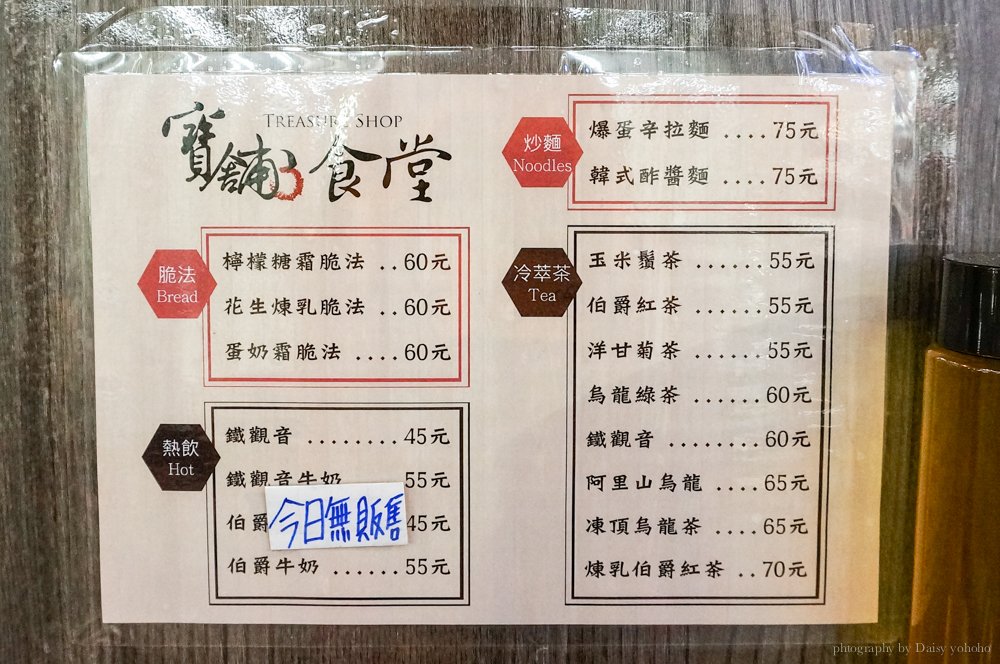 TREASURE SHOP
寶舖食堂
脆法
Bread
檸檬糖霜脆法 ..60元
花生煉乳脆法 ..60元
蛋奶霜脆法 ....60元
熱飲
Hot
鐵觀音 ........45元
鐵觀音牛奶 55元
伯爵 45元
今日無販售
伯爵牛奶 ......55元
炒麵
Noodles
爆蛋辛拉麵 ....75元
韓式酢醬麵 ....75元
冷萃茶
Tea
玉米鬚茶 ......55元
伯爵紅茶 ......55元
洋甘菊茶 ......55元
烏龍綠茶 ......60元
鐵觀音 ........60元
阿里山烏龍 ....65元
凍頂烏龍茶 ....65元
煉乳伯爵紅茶 ..70元
photography by Daisy yohoho